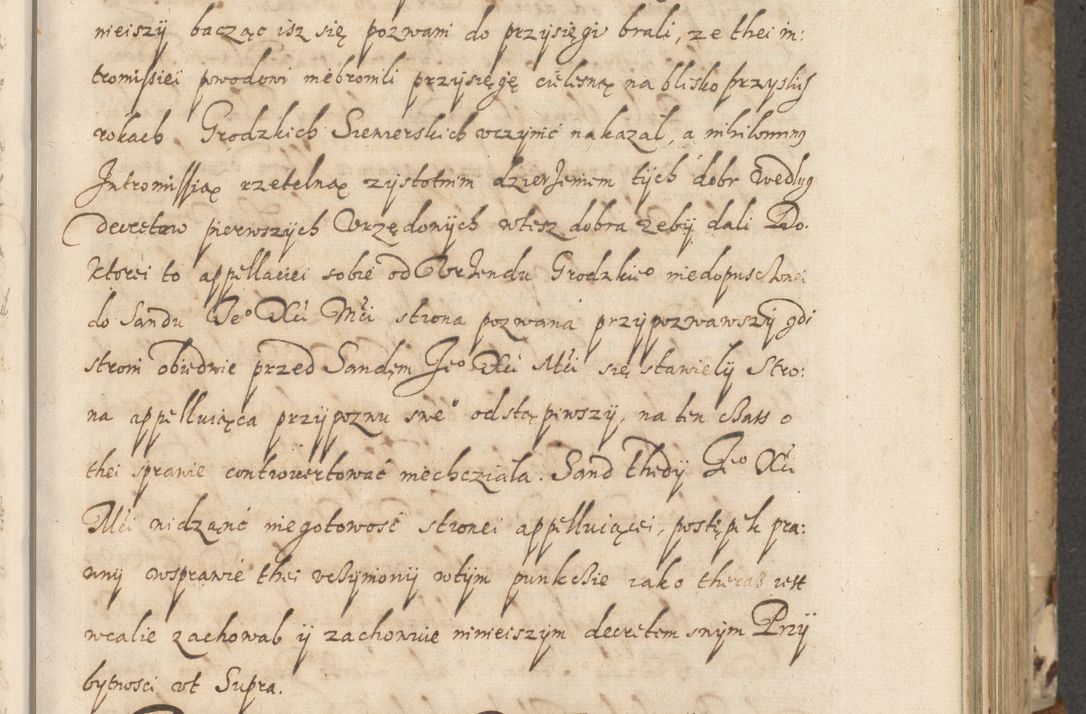 nieiszy bacząc isz się pozwani do przysięgi brali, ze thei in:
tromissiei powodowi niebronili przysięgę cielesną na blisko przyslich
rokach Grodzkich Siewierskich vczynić nakazał, a nihilominus
Intromissią rzetelną zystotnim dzierzeniem tych dobr według
decretow pierwszych Vrzędonych wtesz dobra zeby dali Do.
ktorei to appellaciei sobie od Vrzendu Grodzkieo niedopusczonei
do Sandu Jeo Xci Mci strona pozwana przypozwawszy gdi
stroni obiedwie przed Sandem Jeo Xci Mci się stawiely Stro:
na appelluiąca przypozwu sweo odstąpiwszy, na ten czass o
thei sprawie controvertować niechcziała. Sand Thedy Jeo Xci
Mci widząnć niegotowość stronei appelluiącei, postępek pra:
wny wsprawie thei vczyniony wtym punkczie iako theraz iest
wcalie zachował y zachowuie ninieiszym decretem swym Przy
bytności vt Supra.